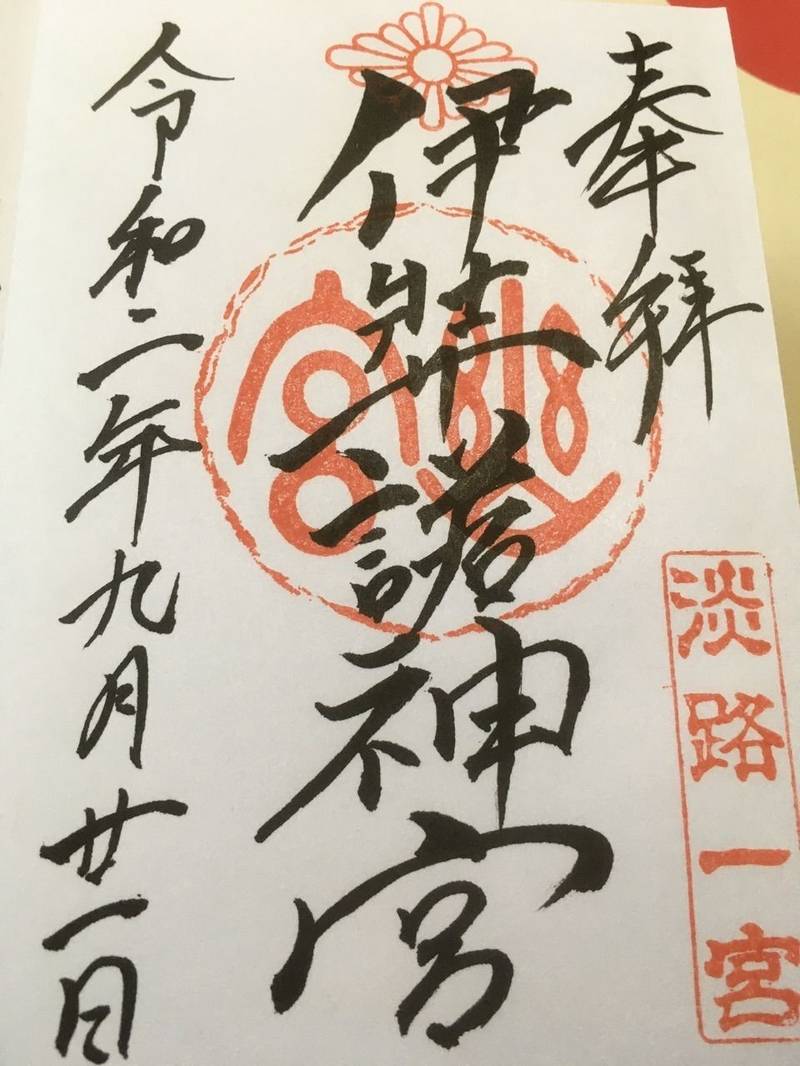 奉拝
淡路一宮
伊弉諾神宮
幽宮
令和二年九月廿一日